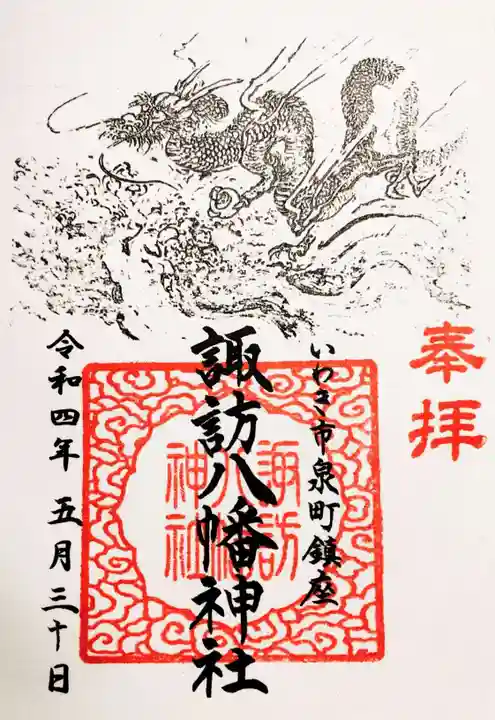 奉拝
いわき市泉町鎮座
諏訪八幡神社
諏訪
八幡
神社
令和四年 五月三十日